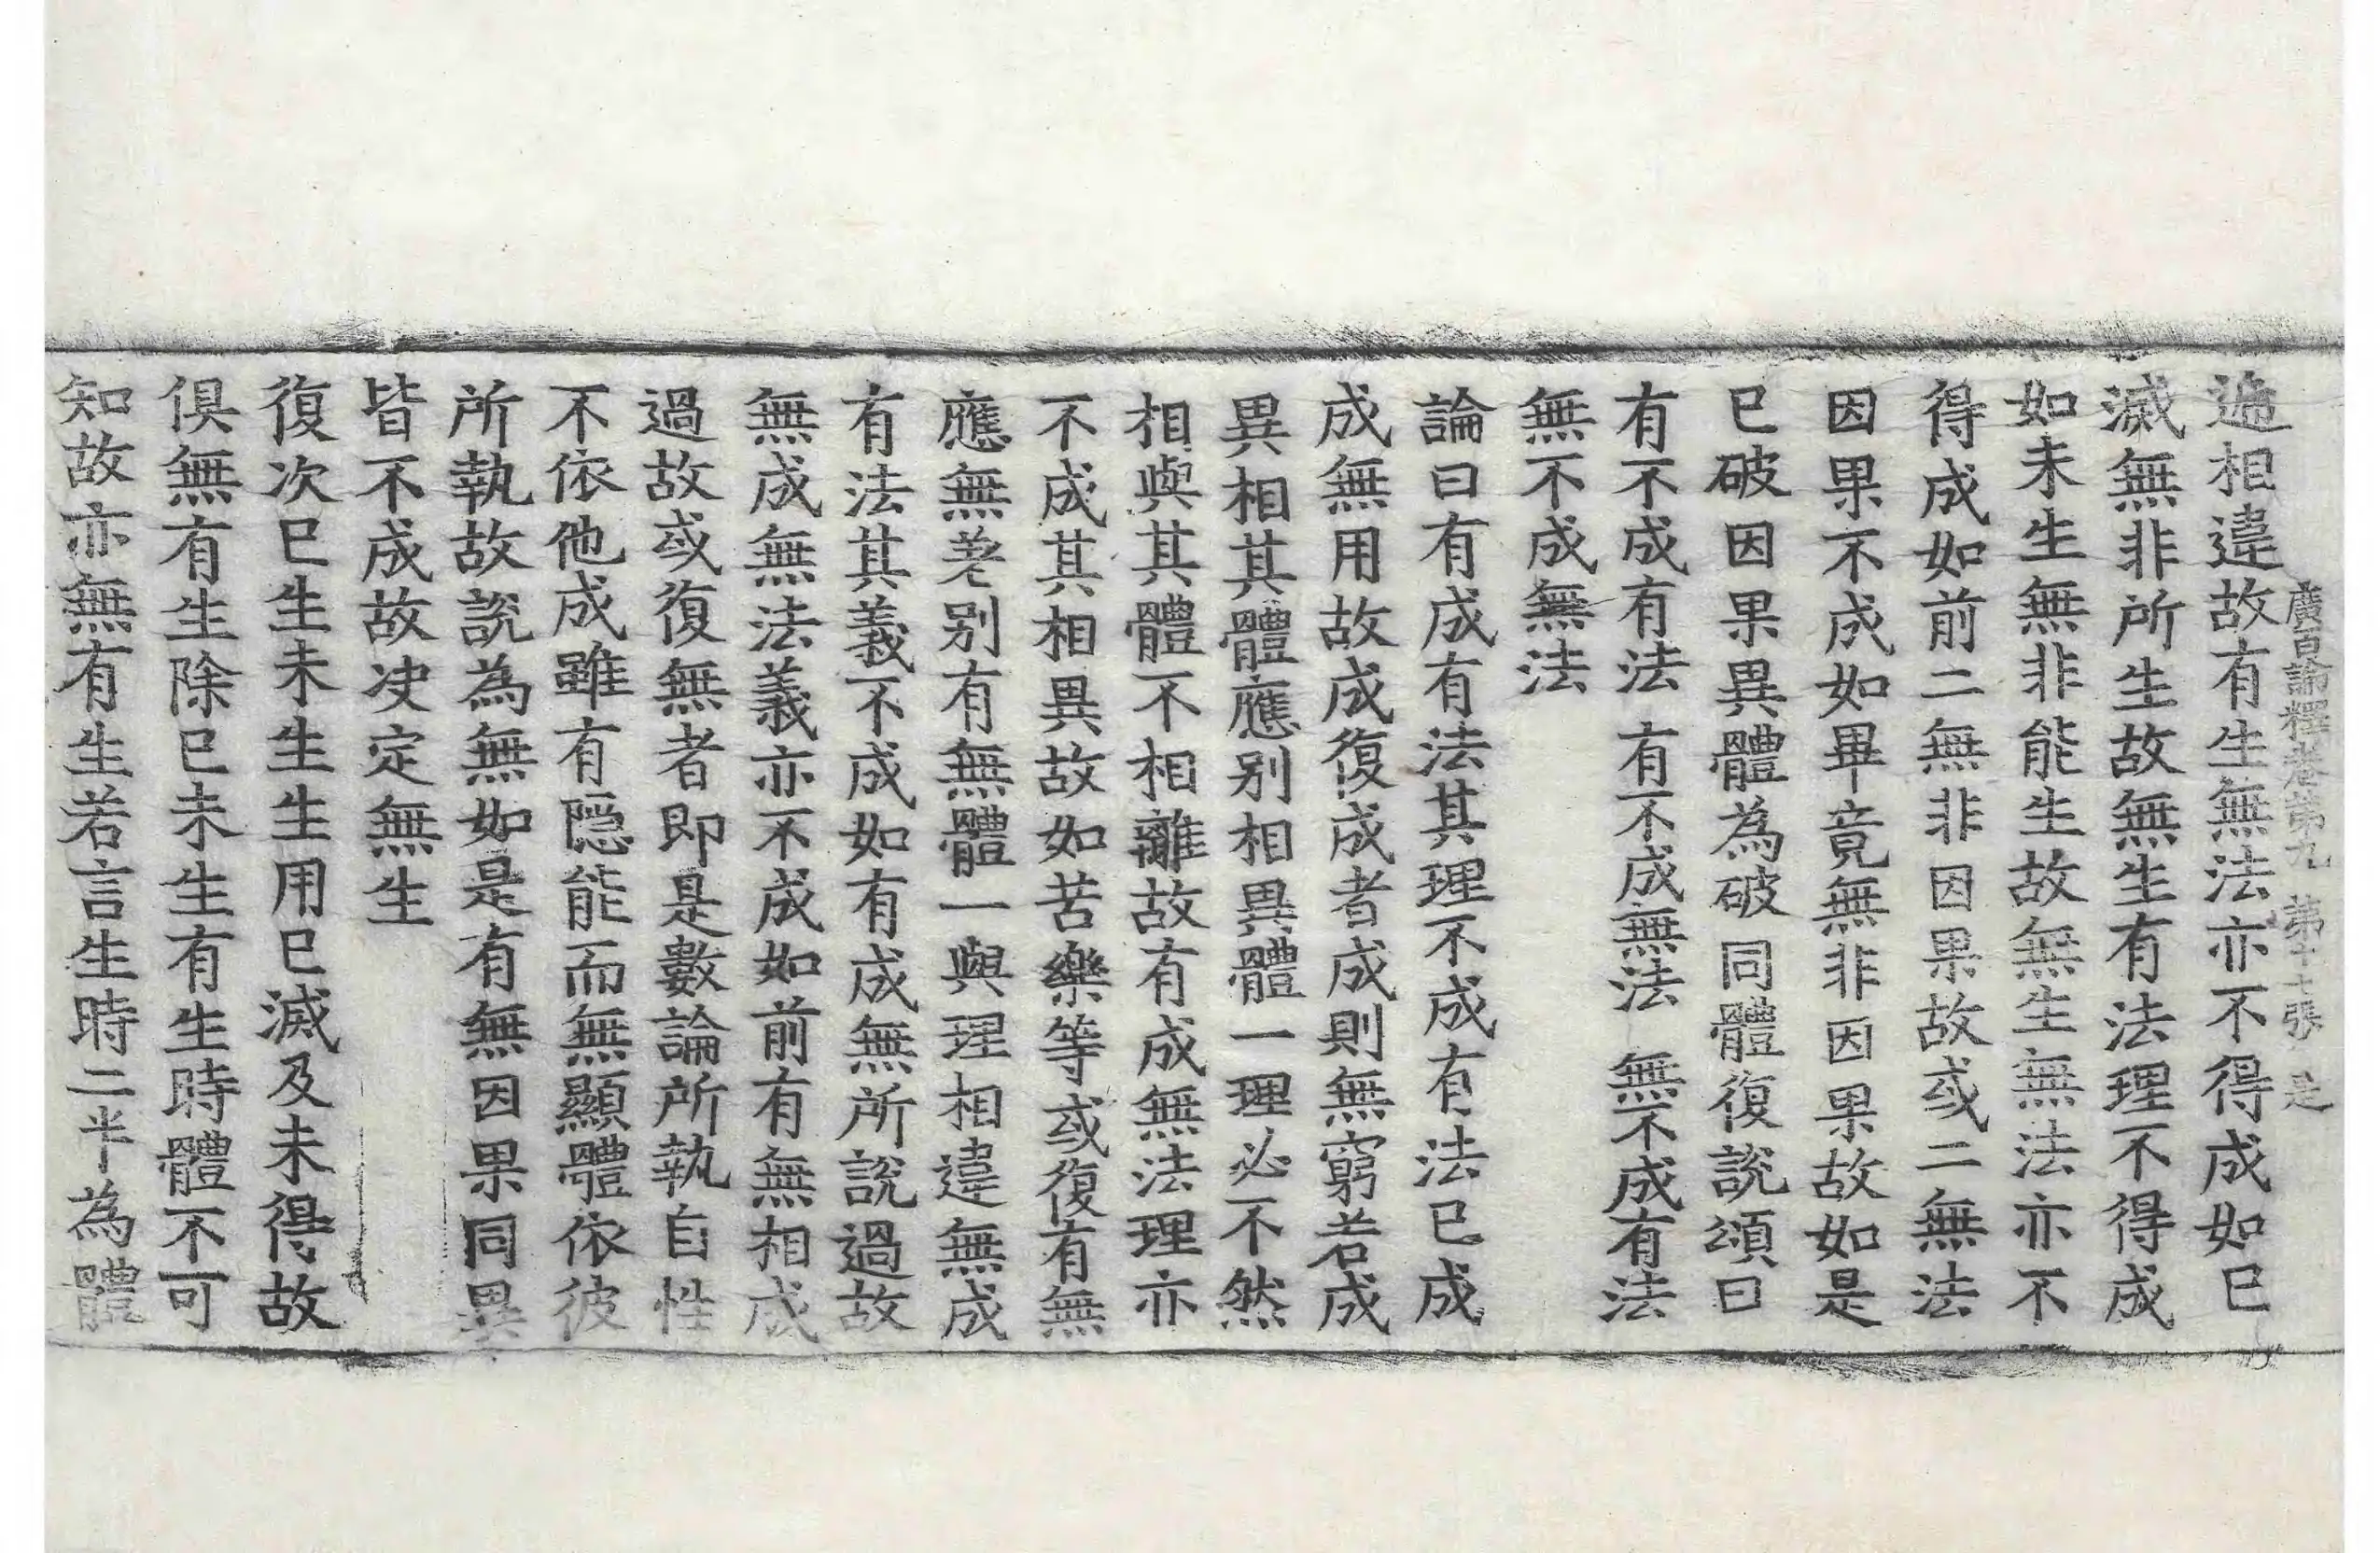 廣百論釋卷第九 第十七張 是
遞相違故有生無法亦不得成如已
滅無非所生故無生有法理不得成
如未生無非能生故無生無法亦不
得成如前二無非因果故或二無法
因果不成如畢竟無非因果故如是
已破因果異體為破同體復說頌曰
有不成有法 有不成無法 無不成有法
無不成無法
論曰有成有法其理不成有法已成
成無用故成復成者成則無窮若成
異相其體應別相異體一理必不然
相與其體不相離故有成無法理亦
不成其相異故如苦樂等或復有無
應無差別有無體一與理相違無成
有法其義不成如有成無所說過故
無成無法義亦不成如前有無相成
過故或復無者即是數論所執自性
不依他成雖有隱能而無顯體依彼
所執故說為無如是有無因果同異
皆不成故決定無生
復次已生未生生用已滅及未得故
俱無有生除已未生有生時體不可
知故亦無有生若言生時二半為體